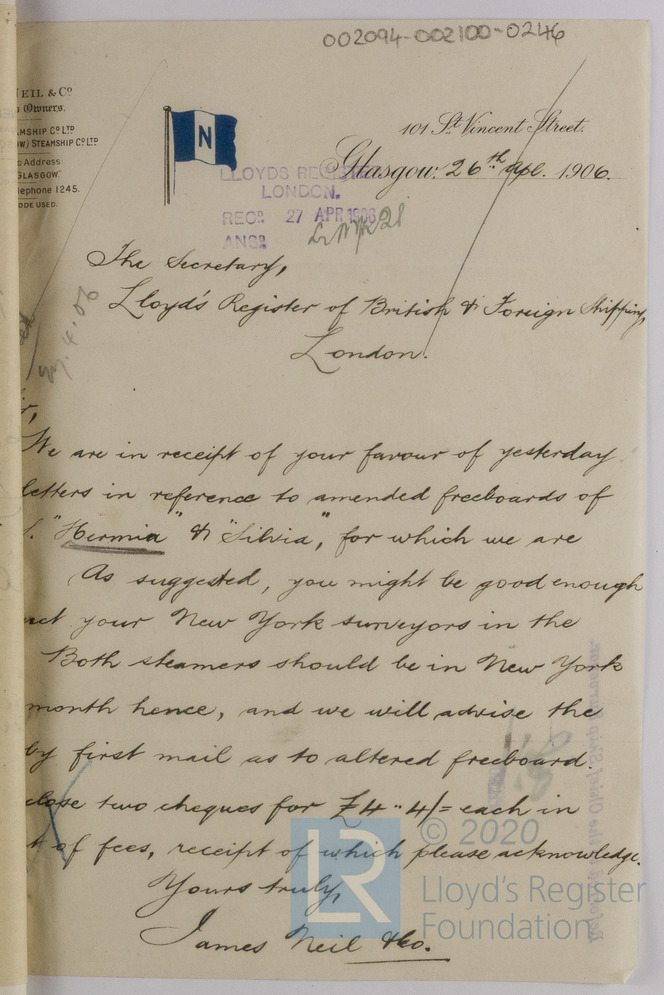 002094-002100-0246
NEIL & Co
Owners.
AMSHIP Co LTD
OW) STEAMSHIP Co LTD
Address
GLASGOW."
lephone 1245.
ODE USED.
N
101 St. Vincent Street.
Glasgow. 26th Apl. 1906.
LLOYDS REGISTER
LONDON.
REC. 27 APR 1906
ANS.
The Secretary,
Lloyd's Register of British & Foreign Shipping,
London.
We are in receipt of your favour of yesterday
letters in reference to amended freeboards of
"Hermia" & "Silvia", for which we are
As suggested, you might be good enough
your New York surveyors in the
Both steamers should be in New York
month hence, and we will advise the
by first mail as to altered freeboard.
close two cheques for £4"4/= each in
t of fees, receipt of which please acknowledge.
Yours truly,
James Neil & Co.
LR
© 2020
Lloyd's Register
Foundation